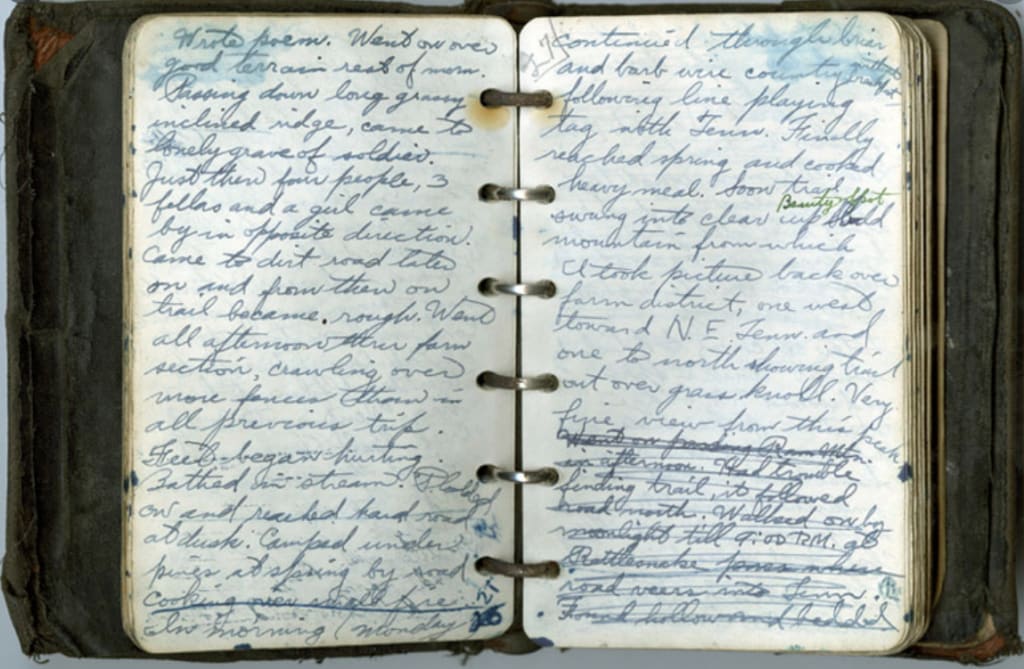 Wrote poem. Went on over
good terrain rest of morn.
Passing down long grassy
inclined ridge, came to
lonely grave of soldier.
Just then four people, 3
fellas and a girl came
by in opposite direction.
Came to dirt road later
on and from then on
trail became rough. Went
all afternoon thru farm
section, crawling over
more fences than in
all previous trip.
Feet began hurting.
Bathed in stream. Plodded
on and reached hard road
at dusk. Camped under
pines at spring by road
cooking over small fire.
In morning (Monday
continued through brier
and barb wire country without breakfast
following line playing
tag with Tenn. Finally
reached spring and cooked
heavy meal. Soon trail
Beauty Spot
swung into clear up
mountain from which
I took picture back over
farm district, one west
toward N.E. Tenn. and
one to north showing trail
out over grass knoll. Very
fine view from this peak
Went on passing
in afternoon. Had trouble
finding trail, it followed
road north. Walked on by
moonlight till 9:00 P.M. at
Rattlesnake where
road veers into Tenn.
Found hollow and bedded